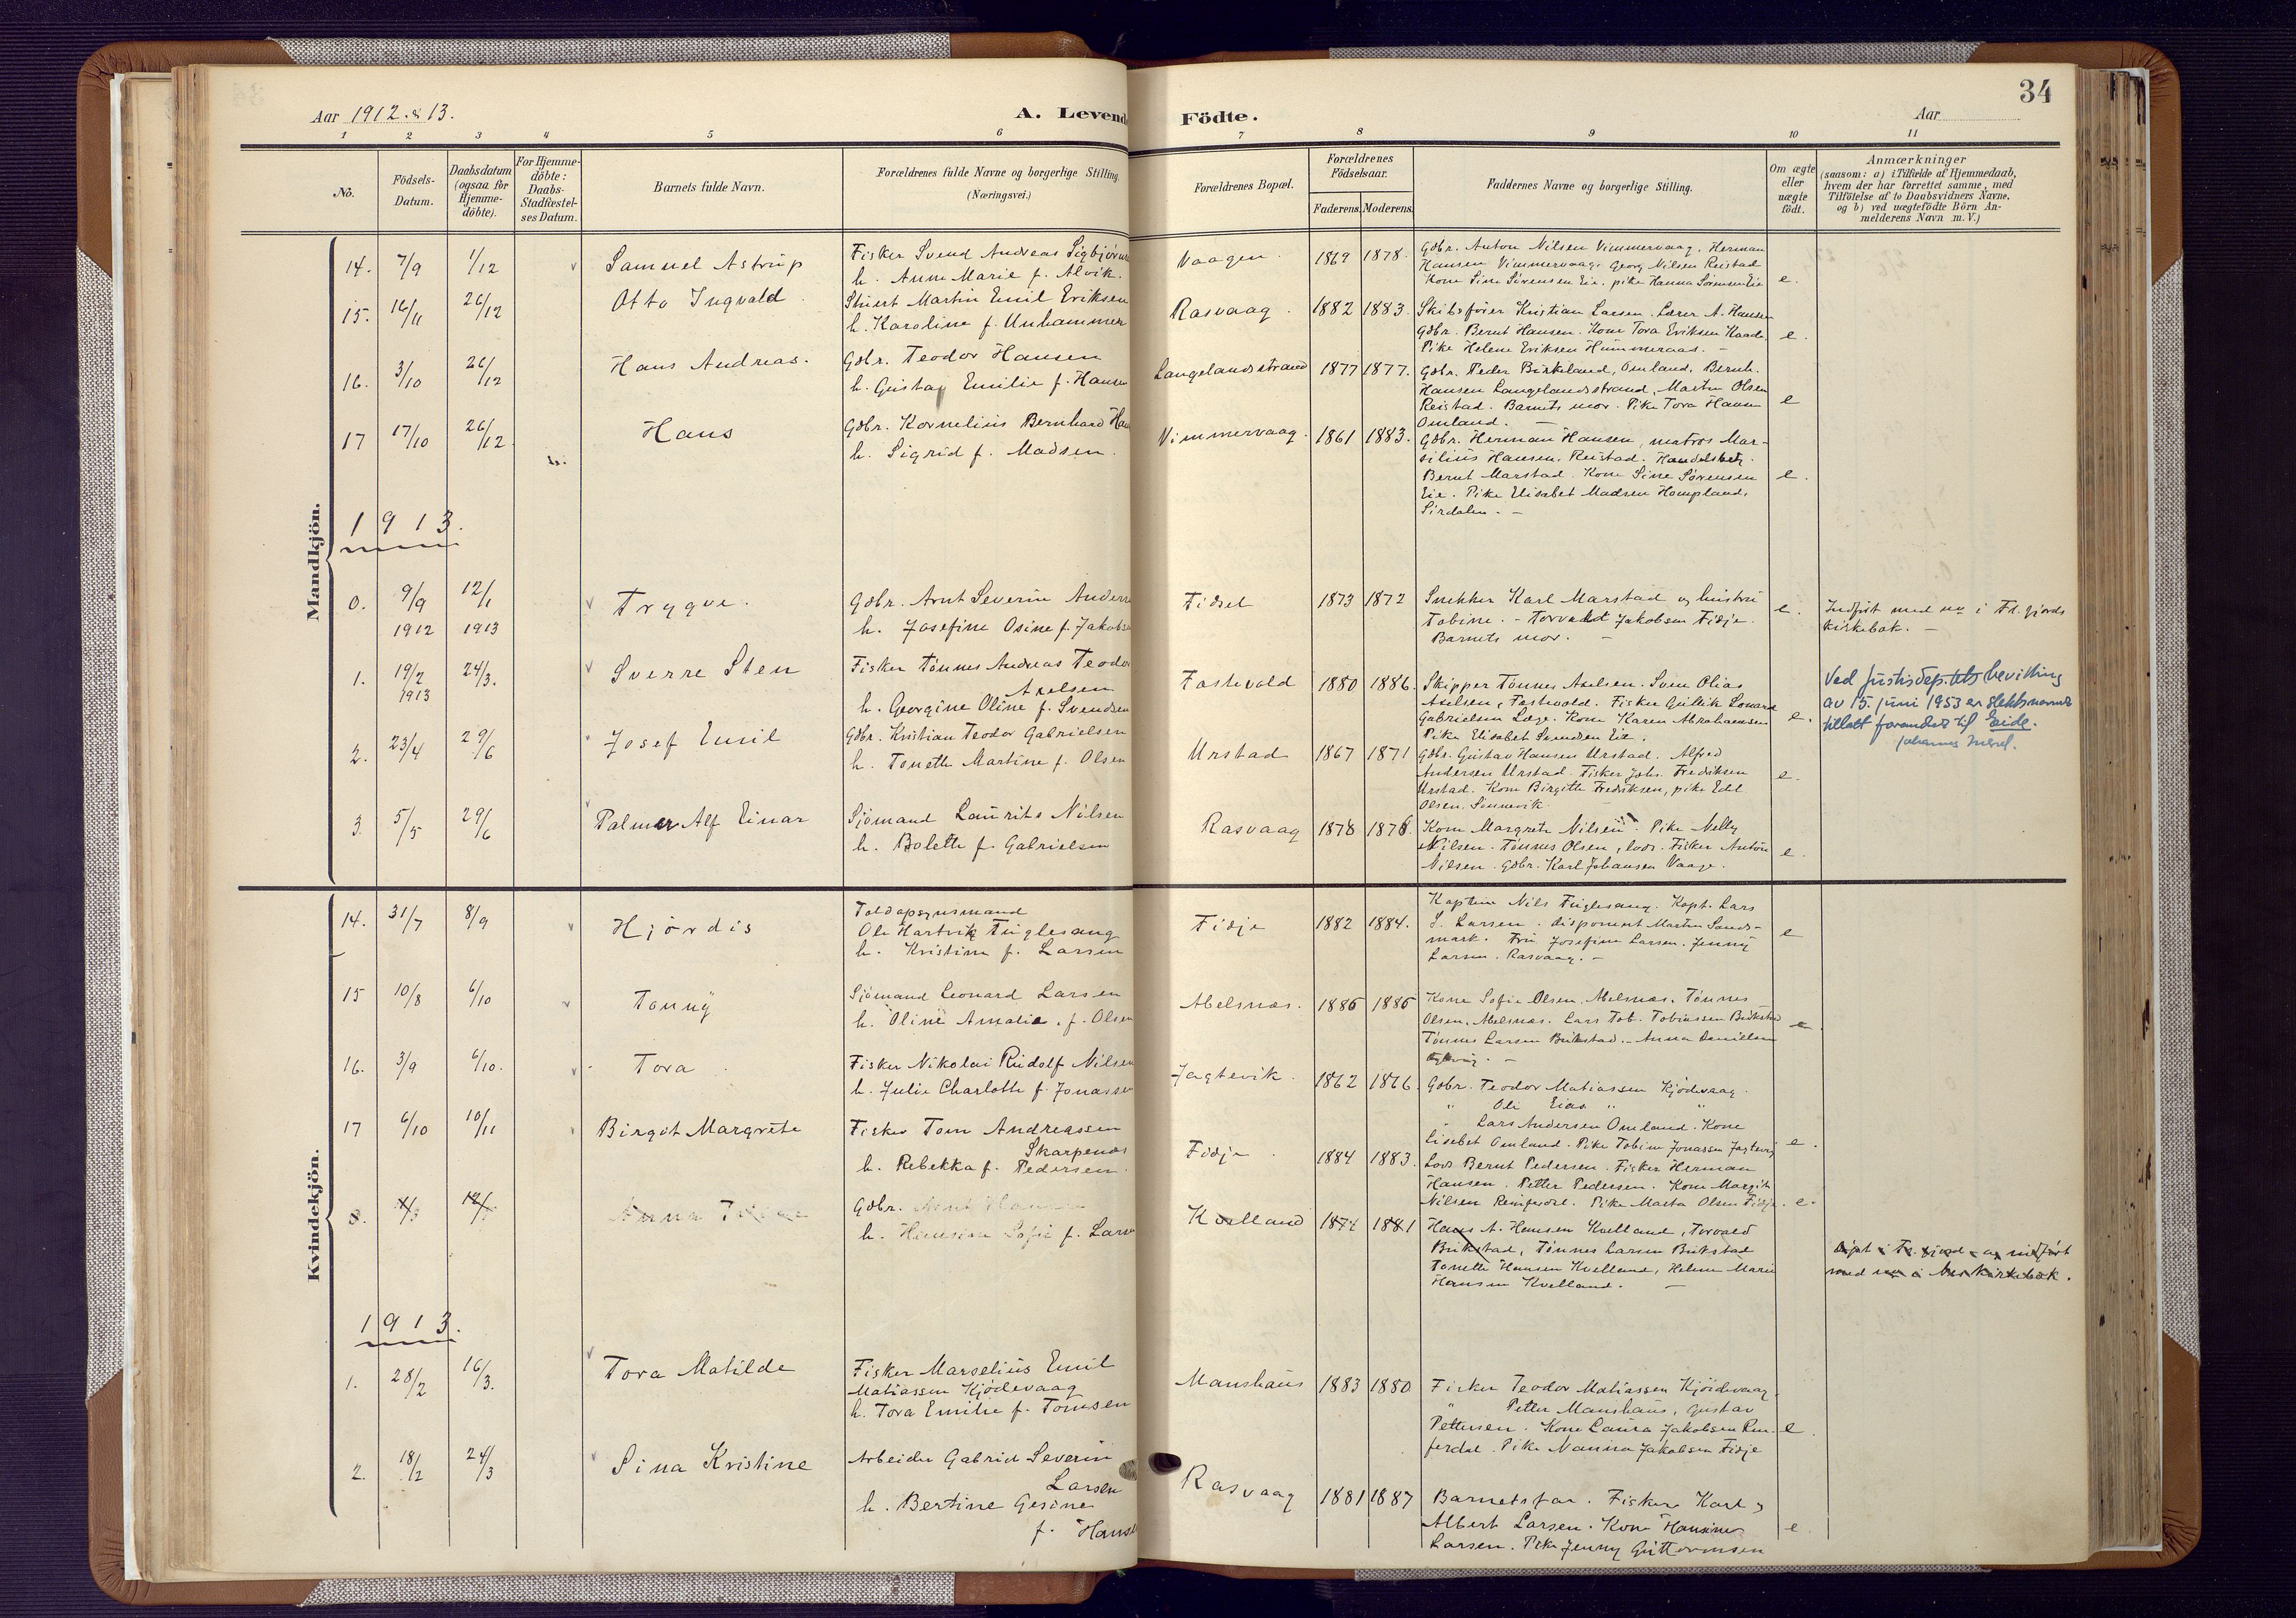 34
Aar 1912 & 13.
A. Levende Födte.
Aar
1 2 3 4 5 6 7 8 9 10 11
No.
Födsels-Datum.
Daabsdatum (ogsaa for Hjemme-döbte).
For Hjemme-döbte: Daabs-Stadfæstel-ses Datum.
Barnets fulde Navn.
Forældrenes fulde Navne og borgerlige Stilling
(Næringsvei.)
Forældrenes Bopæl.
Forældrenes Födselsaar.
Faderens. Moderens.
Faddernes Navne og borgerlige Stilling.
Om ægte eller uægte födt.
Anmærkninger
(saasom: a) i Tilfælde af Hjemmedaab,
hvem der har forrettet samme, med
Tilföielse af to Daabsvidners Navne,
og b) ved uægtefödte Börn An-
melderens Navn m. V.)
Mandkjön.
14. 7/9 1/12 Samuel Astrup
Fisker Svend Andreas
h. Anne Marie f. Alvik.
Vaagen. 1869 1878.
Gdbr. Anton Nilsen Vimmervaag. Herman
Hansen Vimmervaag. Georg Nilsen Reistad
Kone Sine Sörensen Eie. pike Hanna
e.
15. 16/11 26/12 Otto Ingvald
Martin Emil Eriksen
h. Karoline f. Unhammer
Rasvaag. 1882 1883.
Skibsförer Kristian Larsen. Lærer A. Hansen
Gdbr. Bernt Hansen. Kone Tora Eriksen
Pike Helene Eriksen Hummeraas. –
e.
16. 3/10 26/12 Hans Andreas.
Gdbr. Teodor Hansen
h. Gustav Emilie f. Hansen
Langelandsstrand 1877 1877.
Gdbr. Peder Birkeland, Omland. Bernh.
Hansen Langelandsstrand, Martin Olsen
Reistad. Barnets mor. Pike Tora Hansen
Omland. –
e
17 17/10 26/12 Hans
Gdbr. Kornelius Bernhard
h. Sigrid f. Madsen.
Vimmervaag. 1861 1883.
Gdbr. Herman Hansen, matros Mar-
silius Hansen. Reistad.
Bernt Marstad. Kone Sine Sørensen
Eie. Pike Elisabet Madsen Hompland,
Sirdalen. –
e.
1913.
0. 9/9 1912 12/1 1913 Trygve.
Gdbr. Arnt Severin
h. Josefine Osine f.
Fidsel 1873 1872
Snekker Karl Marstad og hustru
Tobine. – Torvald Jakobsen Fidje.
Barnets mor. –
e.
Indført med no i Fl.fjords
kirkebok. –
1. 19/2 1913 24/3. Sverre Sten
Fisker Tönnes Andreas
Axelsen
h. Georgine Oline f. Svendsen
Fastevold 1880 1886.
Skipper Tønnes Axelsen. Sven Olias
Axelsen, Fastevold. Fisker Gullik Lonard
Gabrielsen Kone Karen Abrahamsen
Pike Elisabet Svendsen Eie.
e.
Ved Justisdep.tets bevilling
av 15. juni 1953 er slektsnavnet
tillatt forandret til Eide.
2. 23/4 29/6 Josef Emil
Gdbr. Kristian Teodor Gabrielsen
h. Tonette Martine f. Olsen
Urstad 1867 1871
Gdbr. Gustav Hansen Urstad. Alfred
Andersen Urstad. Fisker Johs. Fredriksen
Urstad. Kone Birgitte Fredriksen, pike Edel
Olsen,
e.
3. 5/5 29/6 Palmer Alf Einar
Sjömand Laurits Nilsen
h. Bolette f. Gabrielsen
Rasvaag 1878 1878.
Kone Margrete Nilsen. Pike Nelly
Nilsen. Tønnes Olsen, lods. Fisker Anton
Nilsen. Gdbr. Karl Johansen Vaage.
e.
Kvindekjön.
14. 31/7 8/9 Hjördis
Toldopsynsmand
Ole Hartvig Fuglesang
h. Kristine f. Larsen
Fidje 1882 1884.
Kaptein Nils Fuglesang. Kapt. Lars
S. Larsen. disponent Martin Sands-
mark. Fru Josefine Larsen. Jenny
Larsen. Rasvaag. –
e
15 10/8 6/10 Tonny
Sjömand Leonard Larsen
h. Oline Amalie, f. Olsen
Abelsnæs. 1885 1885
Kone Sofie Olsen, Abelsnæs. Tönnes
Olsen, Abelsnæs. Lars Tob. Tobiassen
Tönnes Larsen Birkstad. – Anna Danielsen
e
16. 3/9 6/10. Tora
Fisker Nikolai Rudolf Nilsen
h. Julie Charlotte f. Jonassen
Jagtevik. 1862 1876.
Gdbr. Teodor Matiassen Kjødevaag.
" Oli Eias " "
" Lars Andersen Omland. Kone
Lisebet Omland. Pike Tobine Jonassen
e.
17 6/10 10/11 Birgit Margrete
Fisker Tom Andreassen
Skarpenes
h. Rebekka f. Pedersen.
Fidje. 1884 1883.
Lods Bernt Pedersen. Fisker Herman
Hansen. Petter Pedersen. Kone Margit
Nilsen Pike Marta Olsen Fidje.
e.
Anna
Gdbr.
h. Sofie f.
Kvelland 1881
Hans A. Hansen Kvelland, Torvald
Birkstad, Tönnes Larsen Birkstad
Tonette Hansen Kvelland, Helene Marie
Hansen Kvelland. –
med no i kirkebok.
1913.
1. 28/2 16/3. Tora Matilde
Fisker Marselius Emil
Matiassen Kjødevaag
h. Tora Emilie f. Tomsen
Manshaus 1883 1880
Fisker Teodor Matiassen Kjödevaag.
" Petter Manshaus, Gustav
Pettersen. Kone Laura Jakobsen
Pike Nanna Jakobsen Fidje
e.
2. 18/2 24/3 Sina Kristine
Arbeider Gabriel Severin
Larsen
h. Bertine Gesine
f. Hansen
Rasvaag 1881 1887
Barnets far. Fisker Karl
Albert Larsen. Kone Hansine
Larsen. Pike Jenny Guttormsen
e